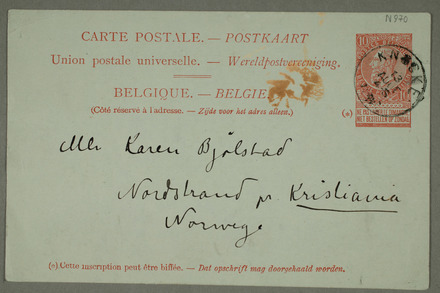 N 970
CARTE POSTALE. — POSTKAART
Union postale universelle. — Wereldpostvereeniging.
BELGIQUE. — BELGIE
(Côté réservé à l'adresse. — Zijde voor het adres alleen.)
(o)
10
KNOCKE
NE PAS LIVRER LE DIMANCHE
NIET BESTELLEN OP ZONDAG
Mlle Karen Bjölstad
Nordstrand pr Kristiania
Norwege
(o) Cette inscription peut être biffée. — Dat opschrift mag doorgehaald worden.